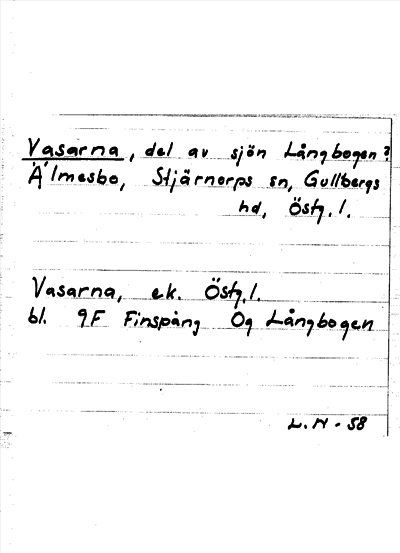 Vasarna, del av sjön Långbogen?
Älmesbo, Stjärnorps sn, Gullbergs
hd, Östg.l.
Vasarna, ek. Östg.l.
bl. 9F Finspång Og Långbogen
L.N - 58